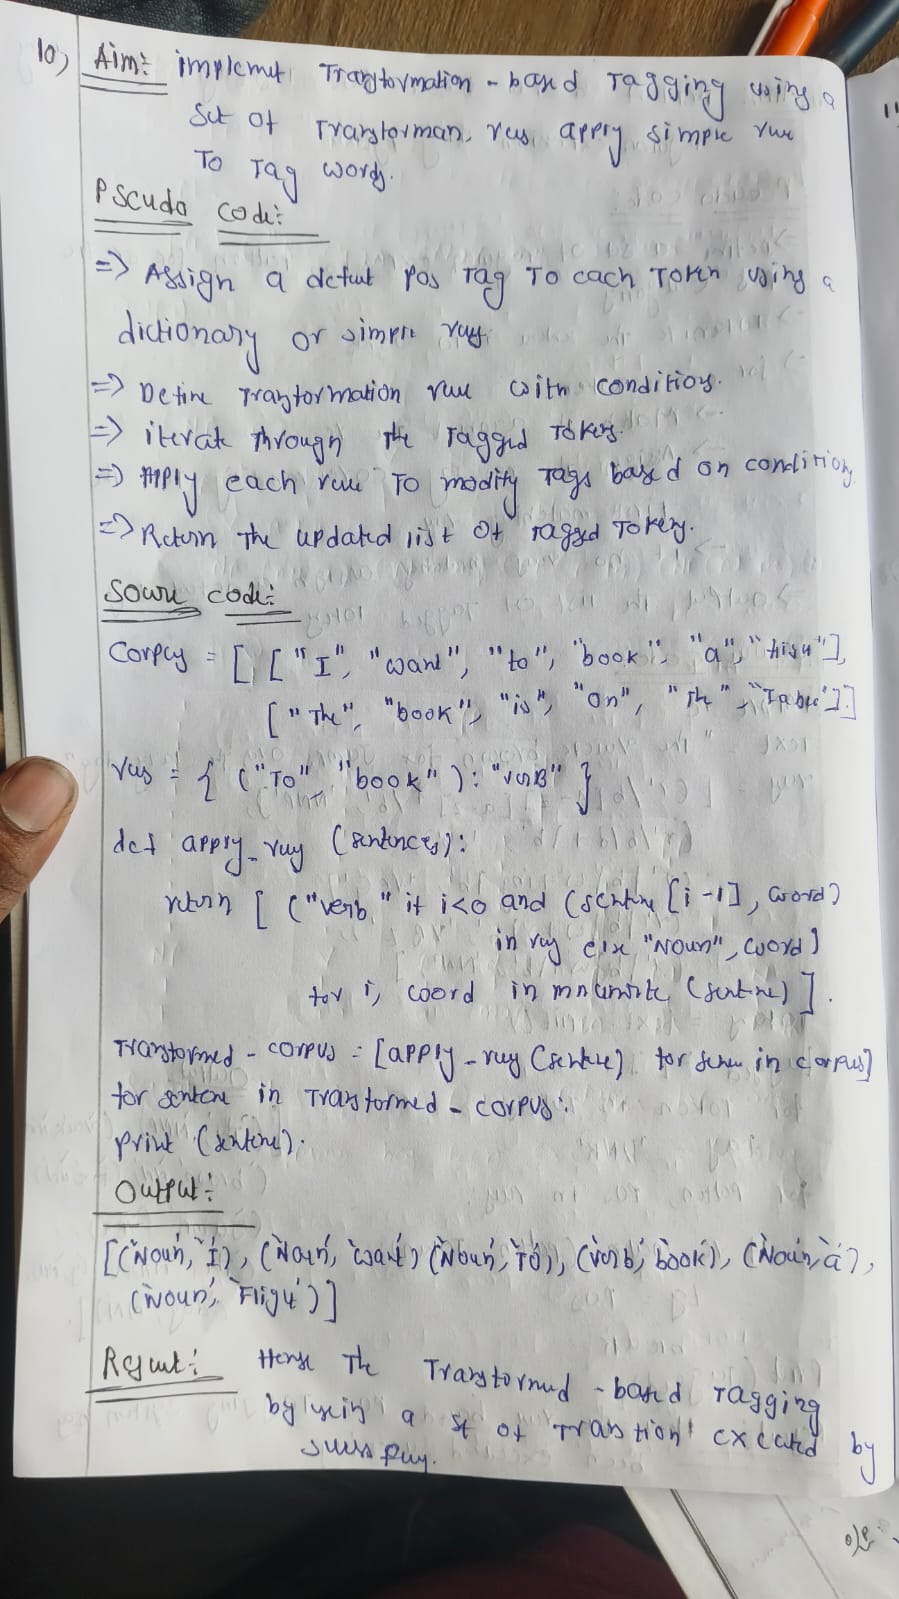 10) Aim: implemet Transformation - based Tagging using a
Set of Transforman, rus, apply simple rue
To Tag words.
Pscudo code:
=> Assign a defult Pos Tag To each Token using a
dictionary or simple rus
=> Define Transformation rule with conditions.
=> iterate through the Tagged Tokens.
=> Apply each rule To modify Tags based on conditions
=> Return the updated list of Tagged Tokens.
Soure code:
Corpus = [ ["I", "want", "to", "book", "a", "
["The", "book", "is", "on", "The", "Table"]]
rus = { ("To", "book") : "verB" }
def apply_ruy (sentences):
return [ ("verb," if i<0 and (sentene [i-1], word)
in ruy else "Noun", word)
for i, word in (sentne) ].
Transformed - corpus = [apply - ruy (sentene) for in corpus]
for sentene in Transformed - corpus:
print (sentene).
Output:
[('Noun', 'I'), ('Noun', 'want') ('Noun', 'To'), ('verb', 'book'), ('Noun', 'a'),
('Noun', 'Fligh')]
Result: Hense The Transformed - based Tagging
by usein a st of Transtion by